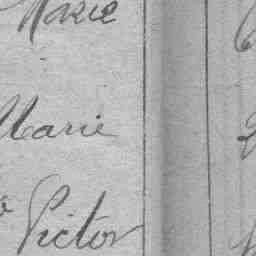 Marie
Marie
Victor